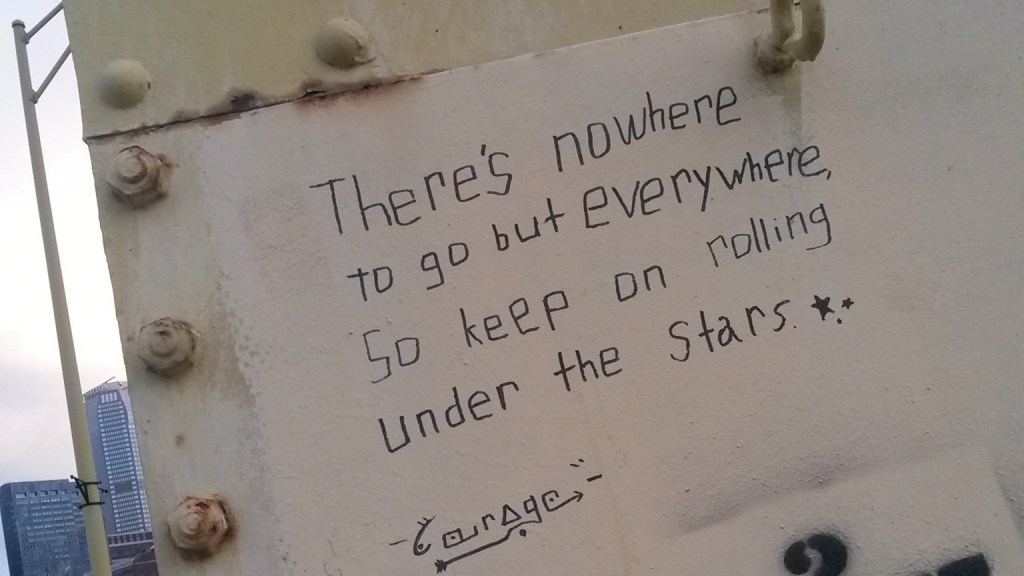 There's nowhere
to go but everywhere,
So keep on rolling
under the stars.
Courage